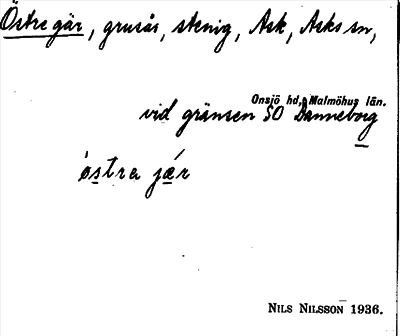 Östre gär, grusås, stenig, Ask, Asks sn,
Onsjö hd, Malmöhus län.
vid gränsen SO Danneborg
östra jær
NILS NILSSON 1936.